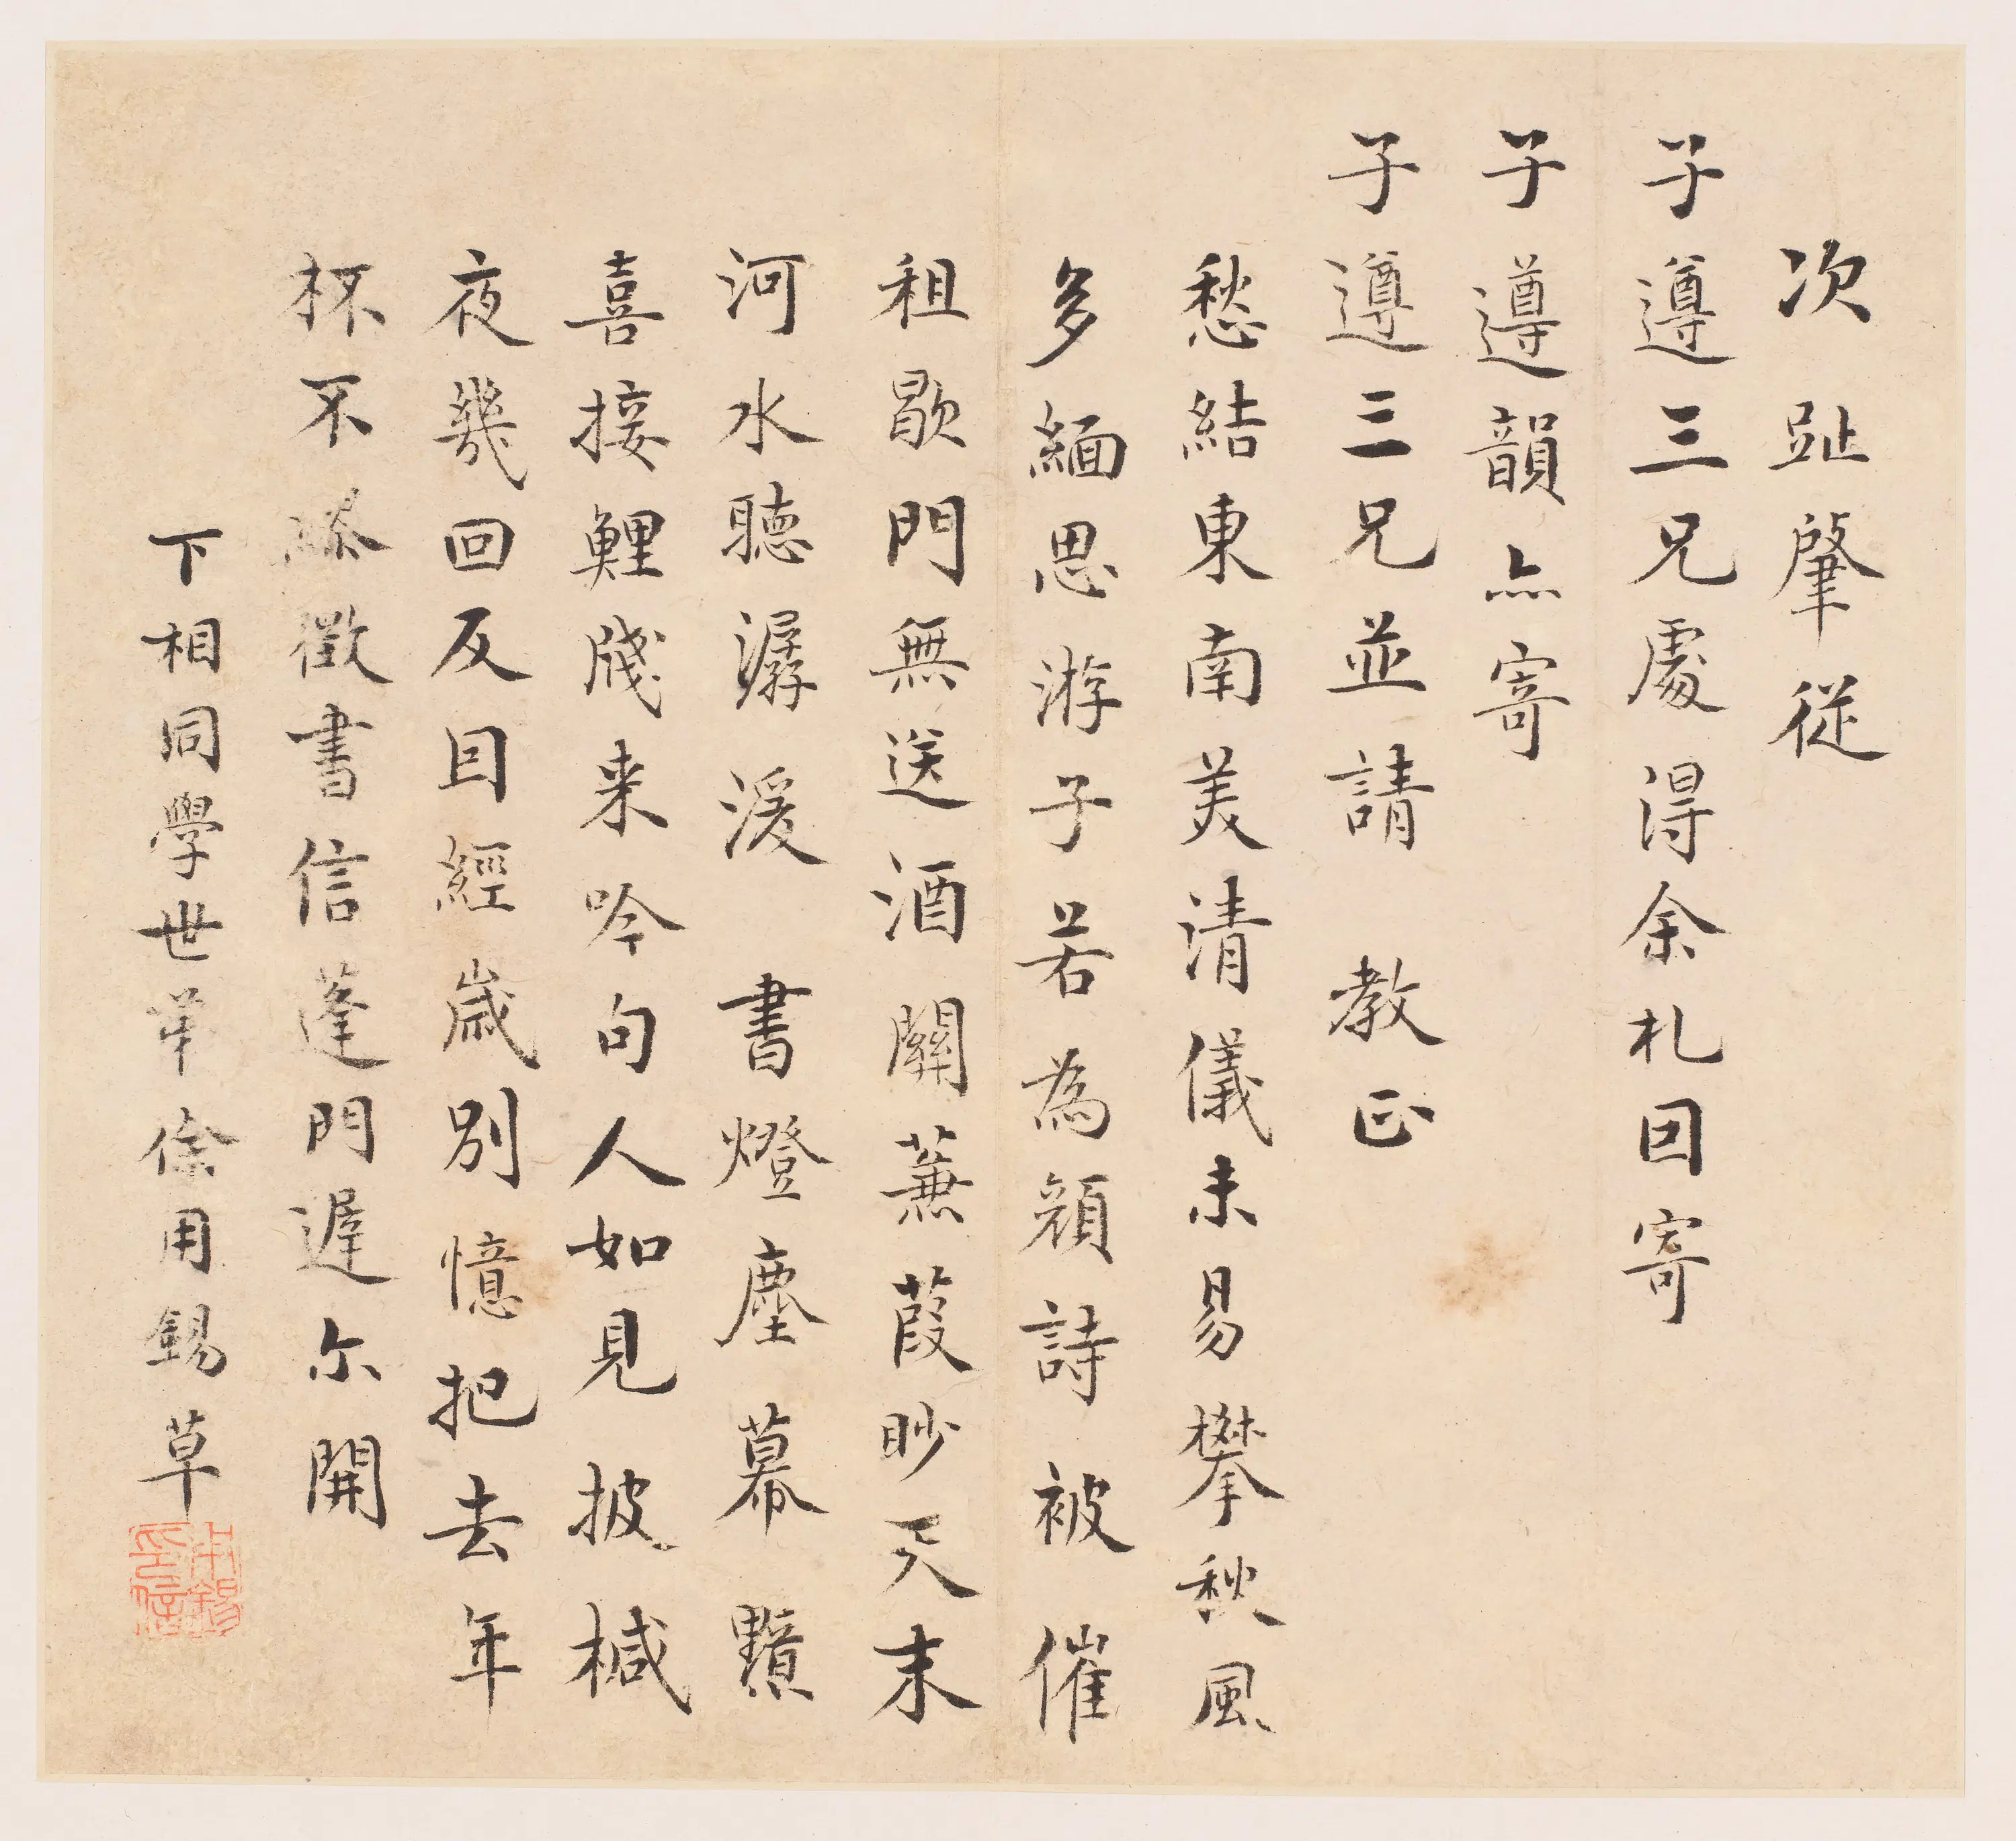 次趾肇從
子遵三兄處得余札回寄
子遵韻亦寄
子遵三兄並請 教正
愁結東南美清儀未易攀秋風
多緬思游子若為顏詩被催
租歇門無送酒關蒹葭眇天末
河水聽潺湲 書燈塵幕黯
喜接鯉牋来吟句人如見披椷
夜幾回反目經歲別憶把去年
杯不 徵書信蓬門遲尔開
下相同學世弟徐用錫草